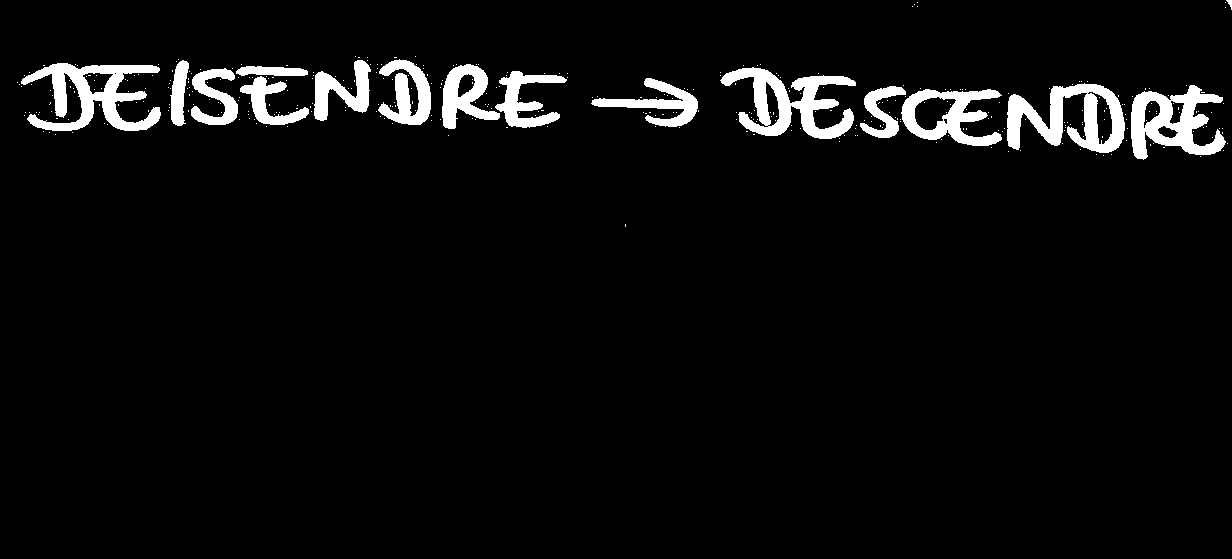 DEISENDRE → DESCENDRE